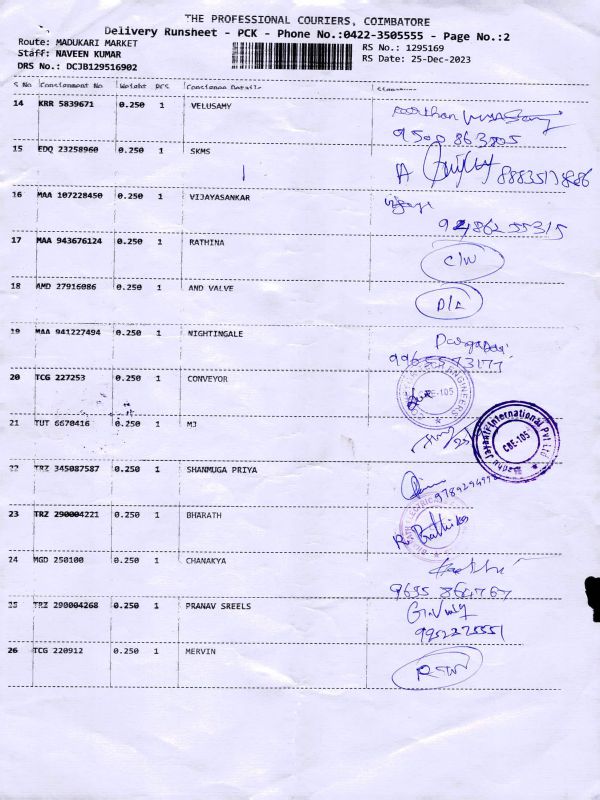 THE PROFESSIONAL COURIERS, COIMBATORE
Delivery Runsheet - PCK - Phone No.:0422-3505555 - Page No.:2
Route: MADUKARI MARKET RS No.: 1295169
Staff: NAVEEN KUMAR RS Date: 25-Dec-2023
DRS No.: DCJB129516902
S No Consignment No Weight PCS Consignee Details Signature
14 KRR 5839671 0.250 1 VELUSAMY
15 EDQ 23258960 0.250 1 SKMS
A 8883517886
16 MAA 107228450 0.250 1 VIJAYASANKAR
9486255315
17 MAA 943676124 0.250 1 RATHINA
C/W
18 AMD 27916086 0.250 1 AND VALVE
D/L
19 MAA 941227494 0.250 1 NIGHTINGALE
20 TCG 227253 0.250 1 CONVEYOR
CBE-105
21 TUT 6670416 0.250 1 MJ
Madhu Jayanti International Pvt Ltd
CBE-105
22 TRZ 345087587 0.250 1 SHANMUGA PRIYA
23 TRZ 290004221 0.250 1 BHARATH
R. Prathika
24 MGD 250100 0.250 1 CHANAKYA
9655 864767
25 TRZ 290004268 0.250 1 PRANAV SREELS
9952275551
26 TCG 220912 0.250 1 MERVIN